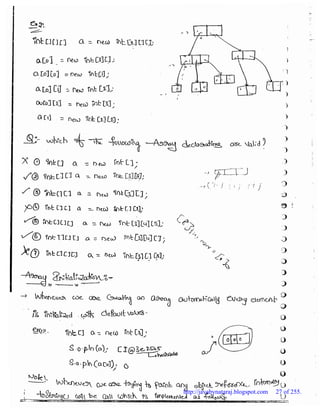 Ex 2:
int[][][] a = new int[2][][];
a[0] = new int[3][];
a[0][0] = new int[1];
a[0][1] = new int[2];
a[0][2] = new int[3];
a[1] = new int[2][2];
Q:- which of the following Array declarations are valid?
X ① int[] a = new int[];
✓② int[][] a = new int[3][4];
✓③ int[][] a = new int[3][];
X④ int[][] a = new int[][4];
✓⑤ int[][][] a = new int[3][4][5];
✓⑥ int[][][] a = new int[3][4][];
X⑦ int[][][] a = new int[3][][5];
Array Initialization :-
→ Whenever we are Creating an array automatically Every element
is initialized with default values.
Ex①: int[] a = new int[3];
S.o.pln(a); [I@3e25a5
hashcode
S.o.pln(a[0]); 0
0 0 0
Note:
Whenever we are trying to print any object reference internally
toString() will be call which is implemented as follows
http://javabynataraj.blogspot.com 27 of 255.